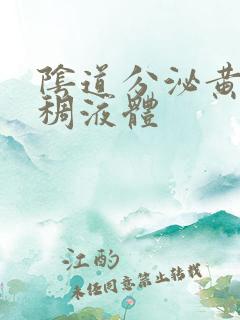 陰道分泌黃
稠液體
江酌
未经同意禁止转载